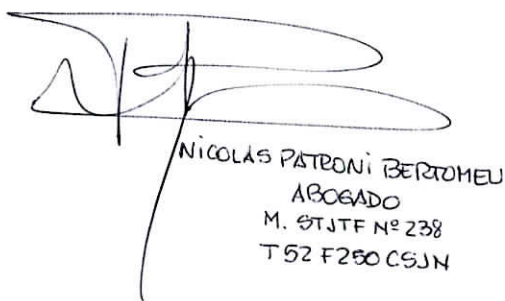 NICOLAS PATRONI BERTOMEU
ABOGADO
M. STJTF Nº 238
T 52 F 250 CSJN